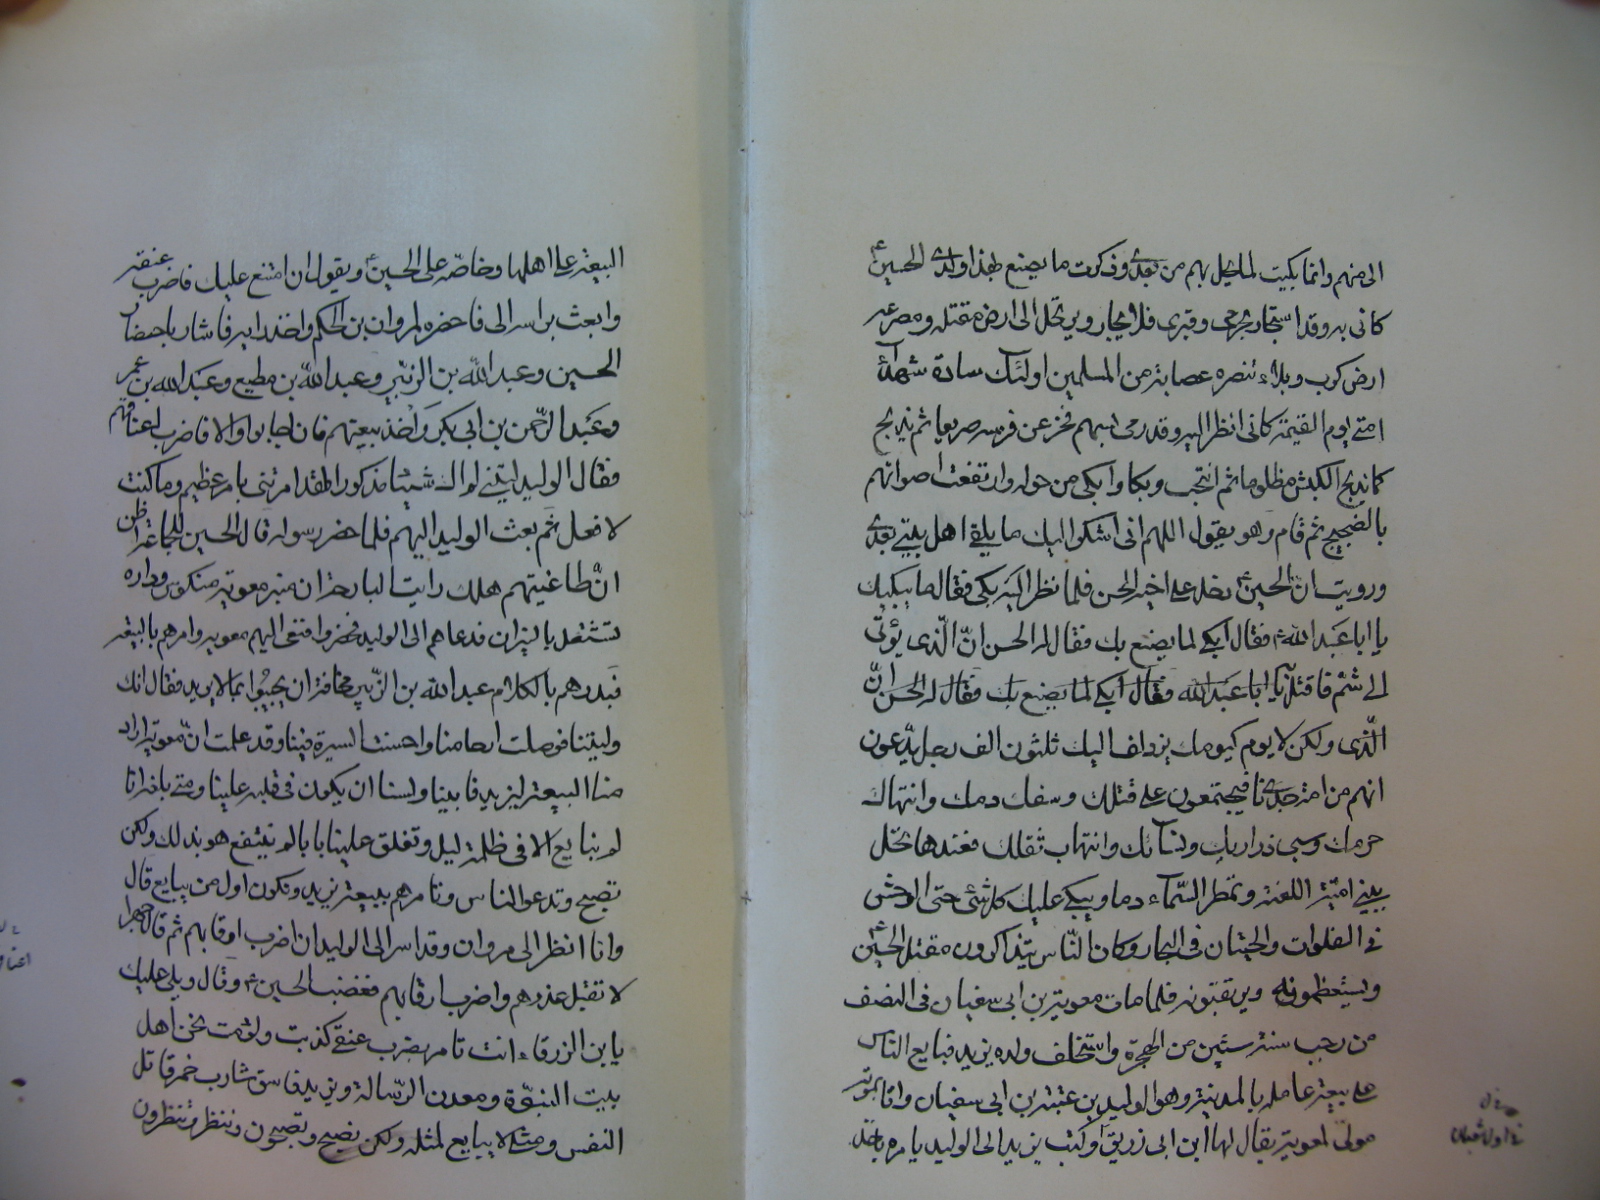 الى منهم وانما بكيت لما يحل بهم من بعدى وذكرت ما يصنع بهذا ولدى الحسين ع
كانى به وقد استجار بحرمى وقبرى فلا يجار ويرتحل الى ارض مقتله ومصرعه
ارض كرب وبلاء تنصره عصابة من المسلمين اولئك سادة شهداء
امتى يوم القيمة كانى انظر اليه وقد رمى بسهم فخر عن فرسه صريعا ثم يذبح
كما يذبح الكبش مظلوما ثم انتحب وبكا وابكى من حوله وارتفعت اصواتهم
بالضجيج ثم قام وهو يقول اللهم انى اشكوا اليك ما يلقى اهل بيتى بعدى
ورويت انّ الحسين ع دخل على اخيه الحسن فلما نظر اليه بكى فقال ما يبكيك
يا ابا عبد الله فقال ابكى لما يصنع بك فقال له الحسن انّ الّذى يؤتى
الى سم فاقتل به يا ابا عبد الله فقال ابكى لما يصنع بك فقال له الحسن انّ
الّذى ولكن لا يوم كيومك يزدلف اليك ثلثون الف رجل يدّعون
انهم من امة جدى نا فيجتمعون على قتلك وسفك دمك وانتهاك
حرمك وسبى ذراريك ونسآئك وانتهاب ثقلك فعندها تحل
ببنى اميّة اللعنة وتمطر السّمآء دما ويبكى عليك كل شئ حتى الوحش
فى الفلوات والحيتان فى البحار وكان النّاس يتذاكرون مقتل الحسين ع
ويستعظمونه ويرتقبونه فلما مات معوية بن ابى سفيان فى النصف
من رجب سنة ستين من الهجرة واستخلف ولده يزيد فبايع الناس
على بيعة عامله بالمدينة وهو الوليد بن عتبة بن ابى سفيان واتا بموته
مولى لمعوية يقال لها ابن ابى زريق وكتب يزيد الى الوليد يامره باخذ
البيعة على اهلها وخاصّة على الحسين ع ويقول ان امتنع عليك فاضرب عنقه
وابعث براسه الى فاحضره لمروان بن الحكم واخذ رايه فاشار باحضار
الحسين وعبد الله بن الزبير وعبد الله بن مطيع وعبد الله بن عمر
وعبد الرّحمن بن ابى بكر واخذ بيعتهم فان اجابوا والا فاضرب اعناقهم
فقال الوليد ليتنى لم اك شيئا مذكورا لقد امرتنى بامر عظيم وما كنت
لافعل ثم بعث الوليد اليهم فلما حضر رسوله قال الحسين للجماعة اظن
انّ طاغيتهم هلك رايت البارحة ان منبر معوية منكوس وداره
تشتعل بالنيران فدعاهم الى الوليد فحضروا فنعى اليهم معويه وامرهم بالبيعة
فبدرهم بالكلام عبد الله بن الزّبير مخافة ان يجيبوا بما لا يريد فقال انك
وليتنا فوصلت ارحامنا واحسنت السيرة فينا وقد علمت انّ معوية اراد
منا البيعة ليزيد فابينا ولسنا ان يكون فى قلبه علينا ومتى باخذ انا
لم نبايع الا فى ظلمة ليل وتغلق علينا بابا لم ينتفع هو بذلك ولكن
تصبح وتدعو الناس وتامرهم ببيعة يزيد ونكون اول من يبايع قال
وانا انظر الى مروان وقد اسر الى الوليد ان اضرب رقابهم ثم قال جهرا
لا تقبل عذرهم واضرب رقابهم فغضب الحسين ع وقال ويلى عليك
يا بن الزرقاء انت تامر بضرب عنقى كذبت ولؤمت نحن اهل
بيت النبوّة ومعدن الرّسالة ويزيد فاسق شارب خمر قاتل
النفس ومثلى لا يبايع لمثله ولكن نصبح وتصبحون وننظر وتنظرون